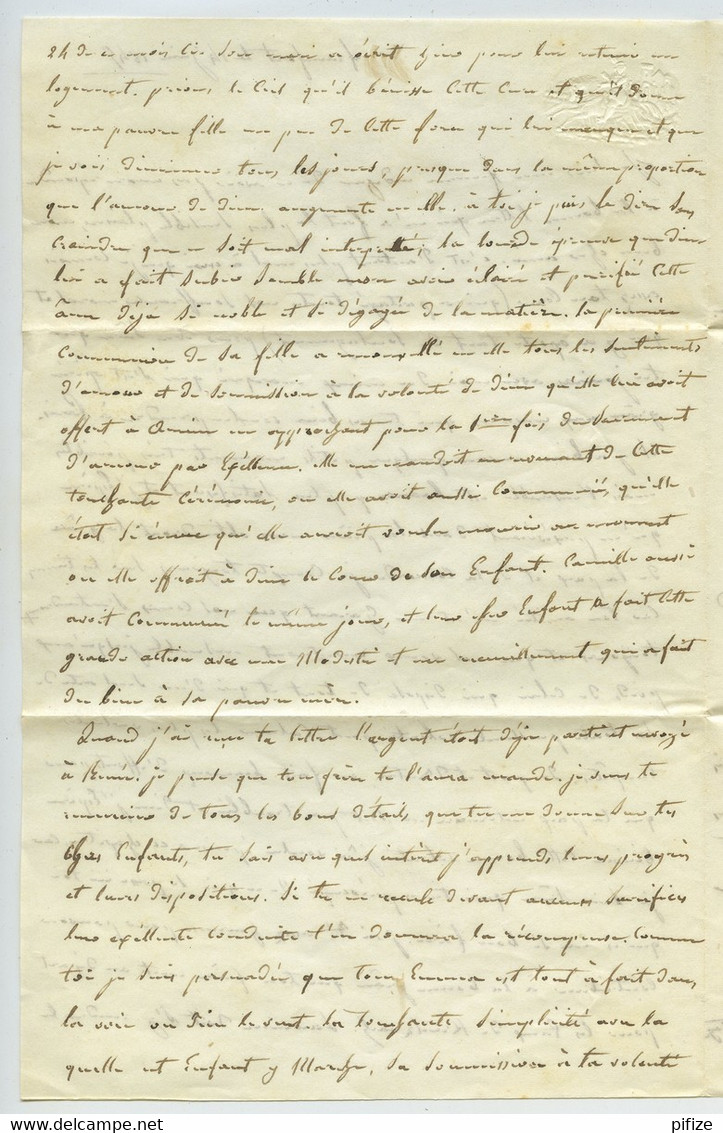 24 de ce mois Ci. Son mari a écrit hier pour lui retenir un
logement. prions le Ciel qu'il bénisse Cette Cure et qu'il donne
à ma pauvre fille un peu de Cette force qui lui manque et que
je vois diminuer tous les jours, presque dans la même proportion
que l'amour de dieu augmente en elle. à toi je puis le dire sans
Craindre que ce soit mal interprété; la lourde épreuve que dieu
lui a fait Subir Semble avoir éclairé et purifié Cette
âme déja Si noble et Si dégagée de la matière. la première
Communion de Sa fille a renouvellé en elle tous les Sentiments
d'amour et de Soumission à la volonté de dieu qu'elle lui avoit
offert à en approchant pour la 1ere fois du Sacrement
d'amour par Exéllence. elle me mandoit en revenant de Cette
touchante Cérémonie, ou elle avoit aussi Communiée, qu'elle
étoit Si émue qu'elle auroit voulu mourir au moment
ou elle offroit à dieu le Coeur de Son Enfant. Camille aussi
avoit Communié le même jour, et leur cher Enfant a fait Cette
grande action avec une Modestie et un recueillement qui a fait
du bien à Sa pauvre mère.
Quand j'ai reçu ta lettre l'argent étoit déja parti et envoyé
à je pense que ton frère te l'aura mandé. je vous te
remercier de tous les bons détails que tu me donne Sur tes
Chers Enfants, tu Sais avec quel intérêt j'apprends leurs progrès
et leurs dispositions. Si tu ne recule devant aucuns Sacrifices
leur exéllente Conduite t'en donnera la récompense. Comme
toi je Suis persuadée que ton Emma est tout à fait dans
la voie ou Dieu la veut. la touchante Simplicité avec la
quelle cet Enfant y Marche, Sa Soumission à ta volonté
pifize